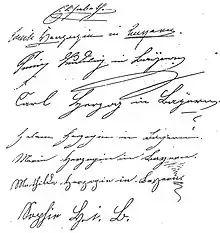 Elisabeth
Herzogin in Bayern.
Ludwig in Bayern
Carl Herzog in Bayern
Helene Herzogin in Bayern.
Marie Herzogin in Bayern.
Mathilde. Herzogin in Bayern
Sophie H. i. B.